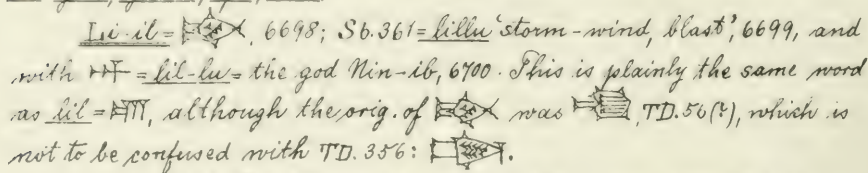 Li-il = 𒇸, 6698; Sb. 361 = lillu 'storm-wind, blast', 6699, and
with 𒀭 = lil-lu = the god Nin-ib, 6700. This is plainly the same word
as lil = , although the orig. of was , TD. 56(?), which is
not to be confused with TD. 356: .